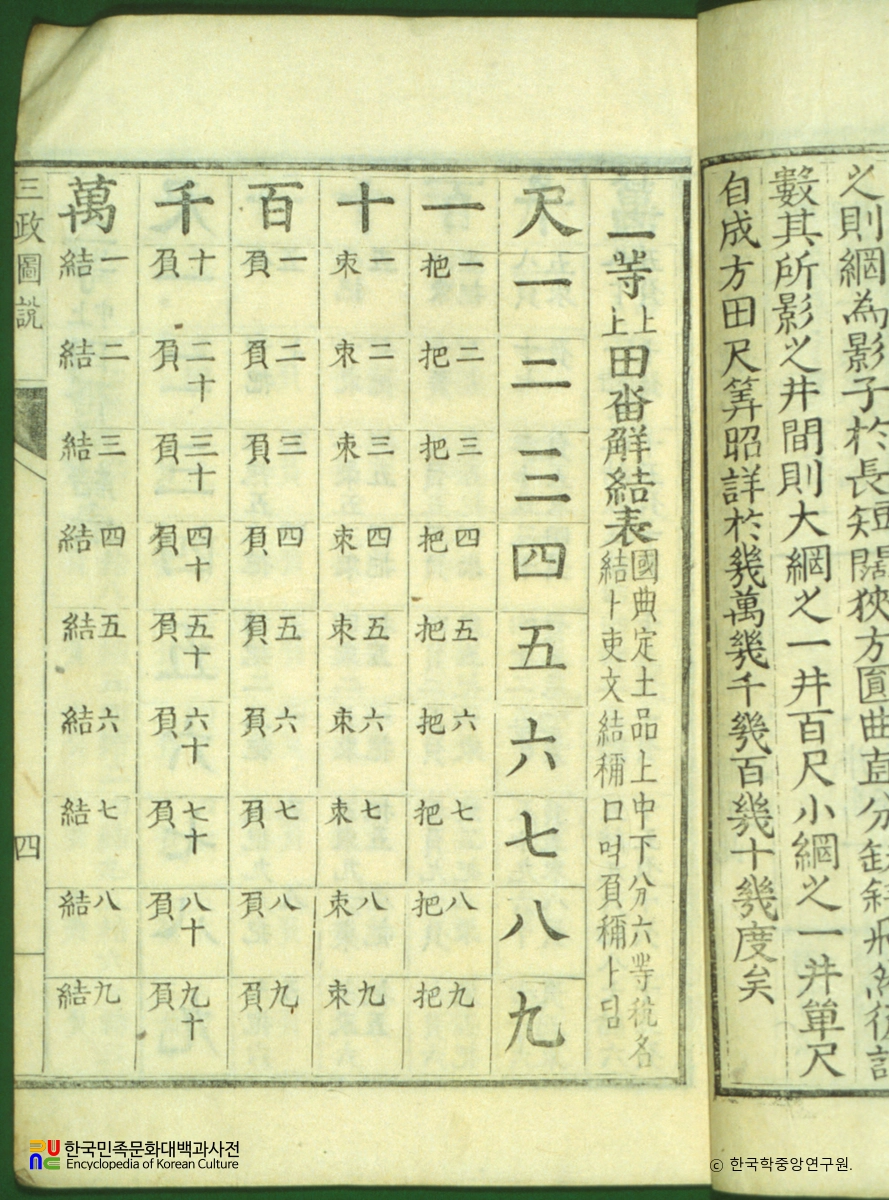 之則網為影子於長短闊狹方圓曲直分
數其所影之井間則大網之一井百尺小網之一井單尺
自成方田尺筭昭詳於幾萬幾千幾百幾十幾度矣
一等上上田畓解結表
國典定土品上中下分六等稅名
結卜吏文結稱口먹負稱卜딤
尺 一 二 三 四 五 六 七 八 九
一 一把 二把 三把 四把 五把 六把 七把 八把 九把
十 一束 二束 三束 四束 五束 六束 七束 八束 九束
百 一負 二負 三負 四負 五負 六負 七負 八負 九負
千 十負 二十負 三十負 四十負 五十負 六十負 七十負 八十負 九十負
萬 一結 二結 三結 四結 五結 六結 七結 八結 九結
三政圖說 四
한국민족문화대백과사전
Encyclopedia of Korean Culture
ⓒ 한국학중앙연구원.